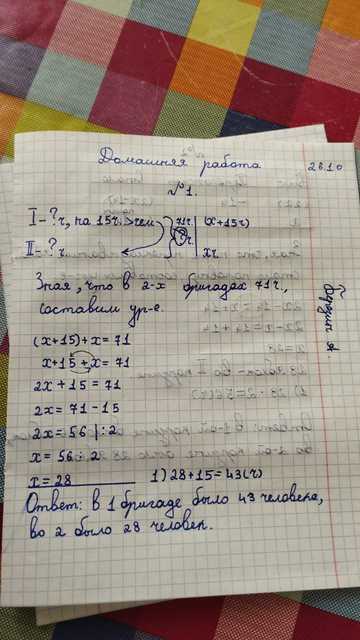 Домашняя работа
28.10
№1.
I - ?ч, на 15ч. > чем 71ч (x+15ч)
II - ?ч. ?ч. xч
Зная, что в 2-х бригадах 71ч.,
составим ур-е.
(x+15)+x=71
x+15+x=71
2x+15=71
2x=71-15
2x=56 |:2
x=56:2
x=28 1) 28+15=43(ч)
Ответ: в 1 бригаде было 43 человека,
во 2 было 28 человек.